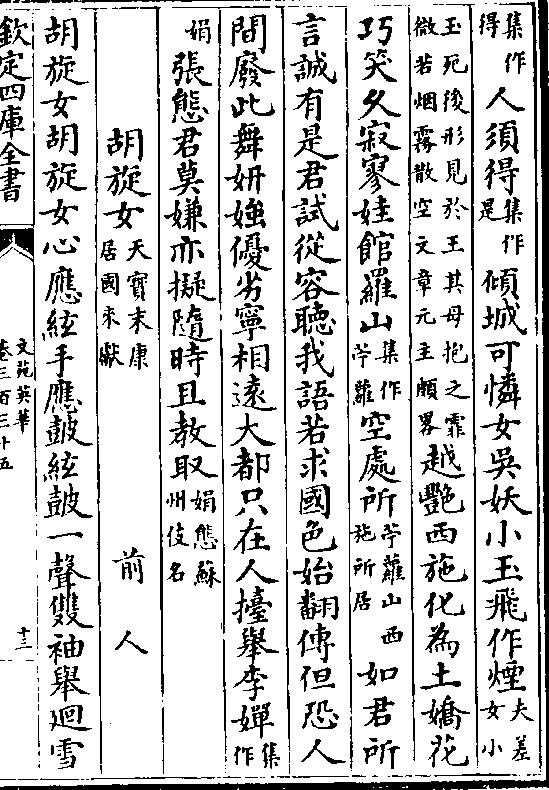 集作得人須得集作是傾城可憐女吳妖小玉飛作煙夫差女小
玉死後形見於王其母抱之霏微若烟霧散空文章元主頗畧越艷西施化為土嬌花
巧笑久寂寥娃館羅山集作苧蘿空處所苧蘿山西施所居如君所
言誠有是君試從容聽我語若求國色始翻傳但恐人
間廢此舞妍媸優劣寧相遠大都只在人擡舉李嬋集作
娟張態君莫嫌亦擬隨時且教取娟態蘇州伎名
胡旋女天寶末康居國来獻 前人
胡旋女胡旋女心應絃手應皷絃皷一聲雙袖舉迴雪
欽定四庫全書
文苑英華
卷三百三十五
十三